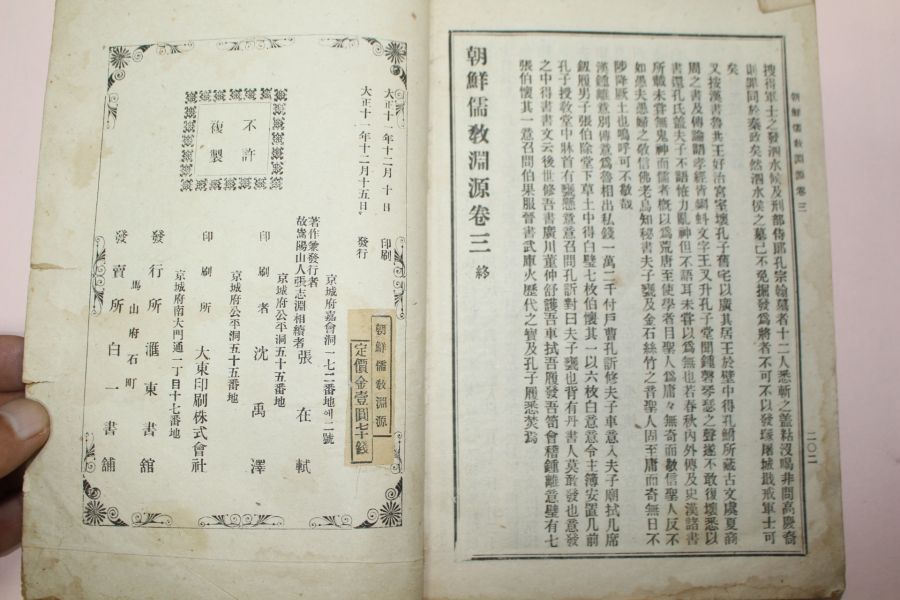 朝鮮儒敎淵源 卷三
二〇二
搜得軍士之發泗水侯及刑部侍郞孔宗翰墓者十二人悉斬之蓋粘沒喝非問高慶裔
則罪同於秦政矣然泗水侯之墓已不免掘發爲將者不可不以發塚屠城戕戒軍士可
矣
又按漢書魯共王好治宮室壞孔子舊宅以廣其居王於壁中得孔鮒所藏古文虞夏商
周之書及傳論語孝經皆蝌蚪文字王又升孔子堂聞鍾磬琴瑟之聲遂不敢復壞悉以
書還孔氏蓋夫子不語怪力亂神但不語耳未甞以爲無也若春秋內外傳及史漢諸書
所載未甞無鬼神而儒者槪以爲荒唐至使學者目聖人爲庸々無奇而敬信聖人反不
如愚夫愚婦之敬信佛老烏知秘書夫子甕及金石絲竹之音聖人固至庸而奇無日不
陟降厥土也嗚呼可不敬哉
漢鍾離意別傳意爲魯相出私錢一萬二千付戶曹孔訢修夫子車意入夫子廟拭几席
釼履男子張伯除堂下草土中得白璧七枚伯懷其一以六枚白意意令主簿安置几前
孔子授敎堂中牀首有甕懸意意召問孔訢對曰夫子甕也背有丹書人莫敢發也意發
之中得書書文云後世修吾書廣川董仲舒護吾車拭吾履發吾笥會稽鍾離意璧有七
張伯懷其一意召問伯果服晉書武庫火歷代之寶及孔子履悉焚焉
朝鮮儒敎淵源卷三 終
大正十一年十二月 十 日 印刷
大正十一年十二月十五日 發行
不許
複製
朝鮮儒敎淵源
定價金壹圓七十錢
京城府嘉會洞一七二番地에二號
著作兼發行者
故嵩陽山人張志淵相續者 張在軾
京城府公平洞五十五番地
印刷者 沈禹澤
京城府公平洞五十五番地
印刷所 大東印刷株式會社
京城府南大門通一丁目十七番地
發行所 滙東書館
馬山府石町
發賣所 白一書舖